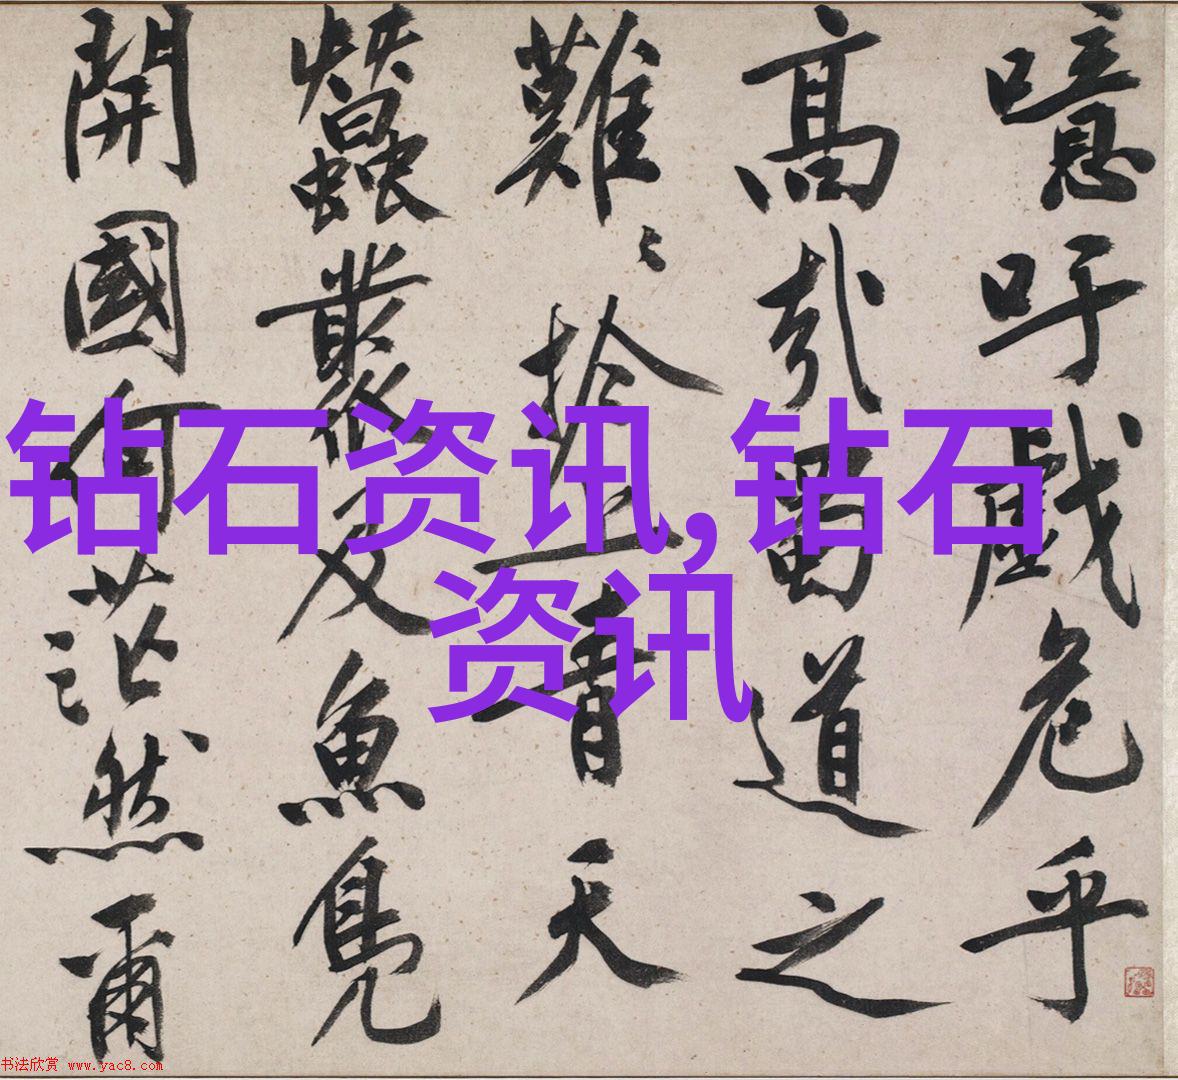 噫吁戲危乎
高哉蜀道之
難〻扵上青天
蠶叢及魚鳧
開國何茫然爾
钻石资讯,钻石
资讯
书法欣赏 www.yac8.com